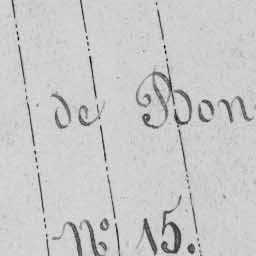 de Bon
Nº 15.